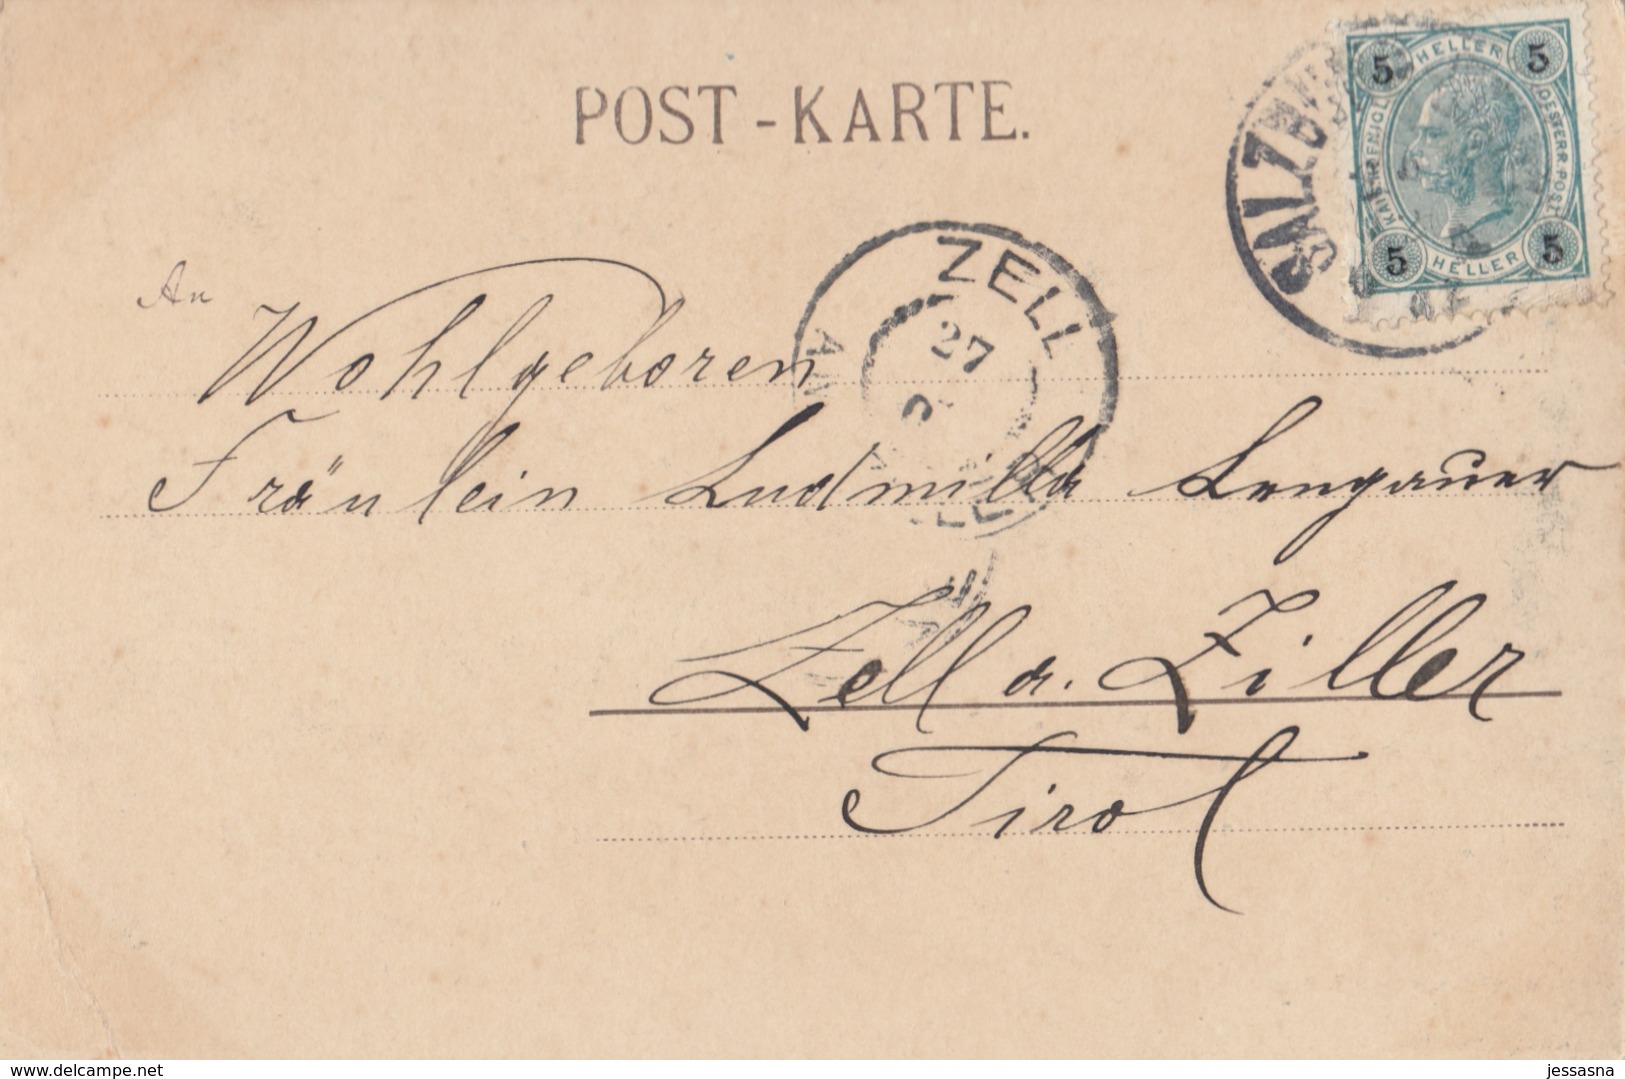 POST-KARTE.
5 HELLER 5
KAISERL. KÖNIGL. OESTERR. POST
5 HELLER 5
SALZBURG
ZELL
AM
27
ZILLER
An
Wohlgeboren
Fräulein Ludmilla Lengauer
Zell a. Ziller
Tirol
www.delcampe.net
jessasna